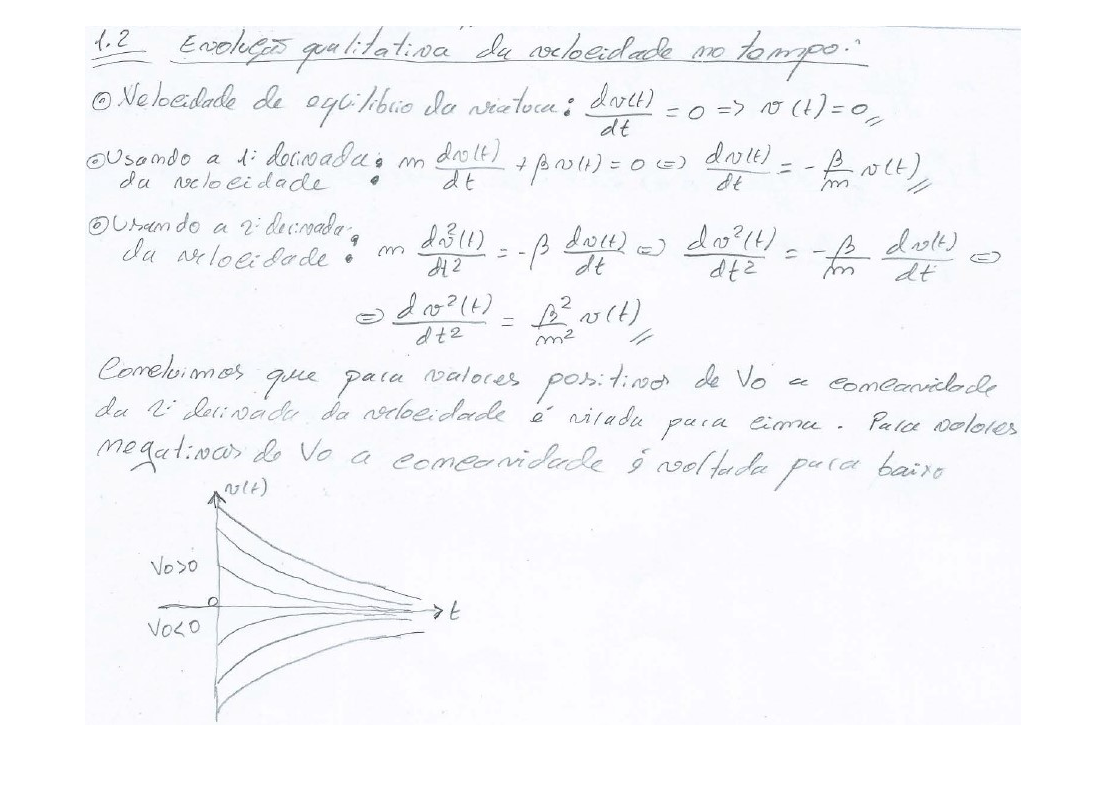 1.2 Evolução qualitativa da velocidade no tempo:
⊙ Velocidade de equilíbrio da viatura: dv(t)/dt = 0 => v(t) = 0 //
⊙ Usando a 1ª derivada da velocidade : m dv(t)/dt + βv(t) = 0 <=> dv(t)/dt = - β/m v(t) //
⊙ Usando a 2ª derivada da velocidade : m d²v(t)/dt² = -β dv(t)/dt <=> dv²(t)/dt² = - β/m dv(t)/dt <=>
<=> dv²(t)/dt² = β²/m² v(t) //
Concluimos que para valores positivos de Vo a concavidade
da 2ª derivada da velocidade é virada para cima. Para valores
negativos de Vo a concavidade é voltada para baixo
v(t)
Vo>0
0
t
Vo<0